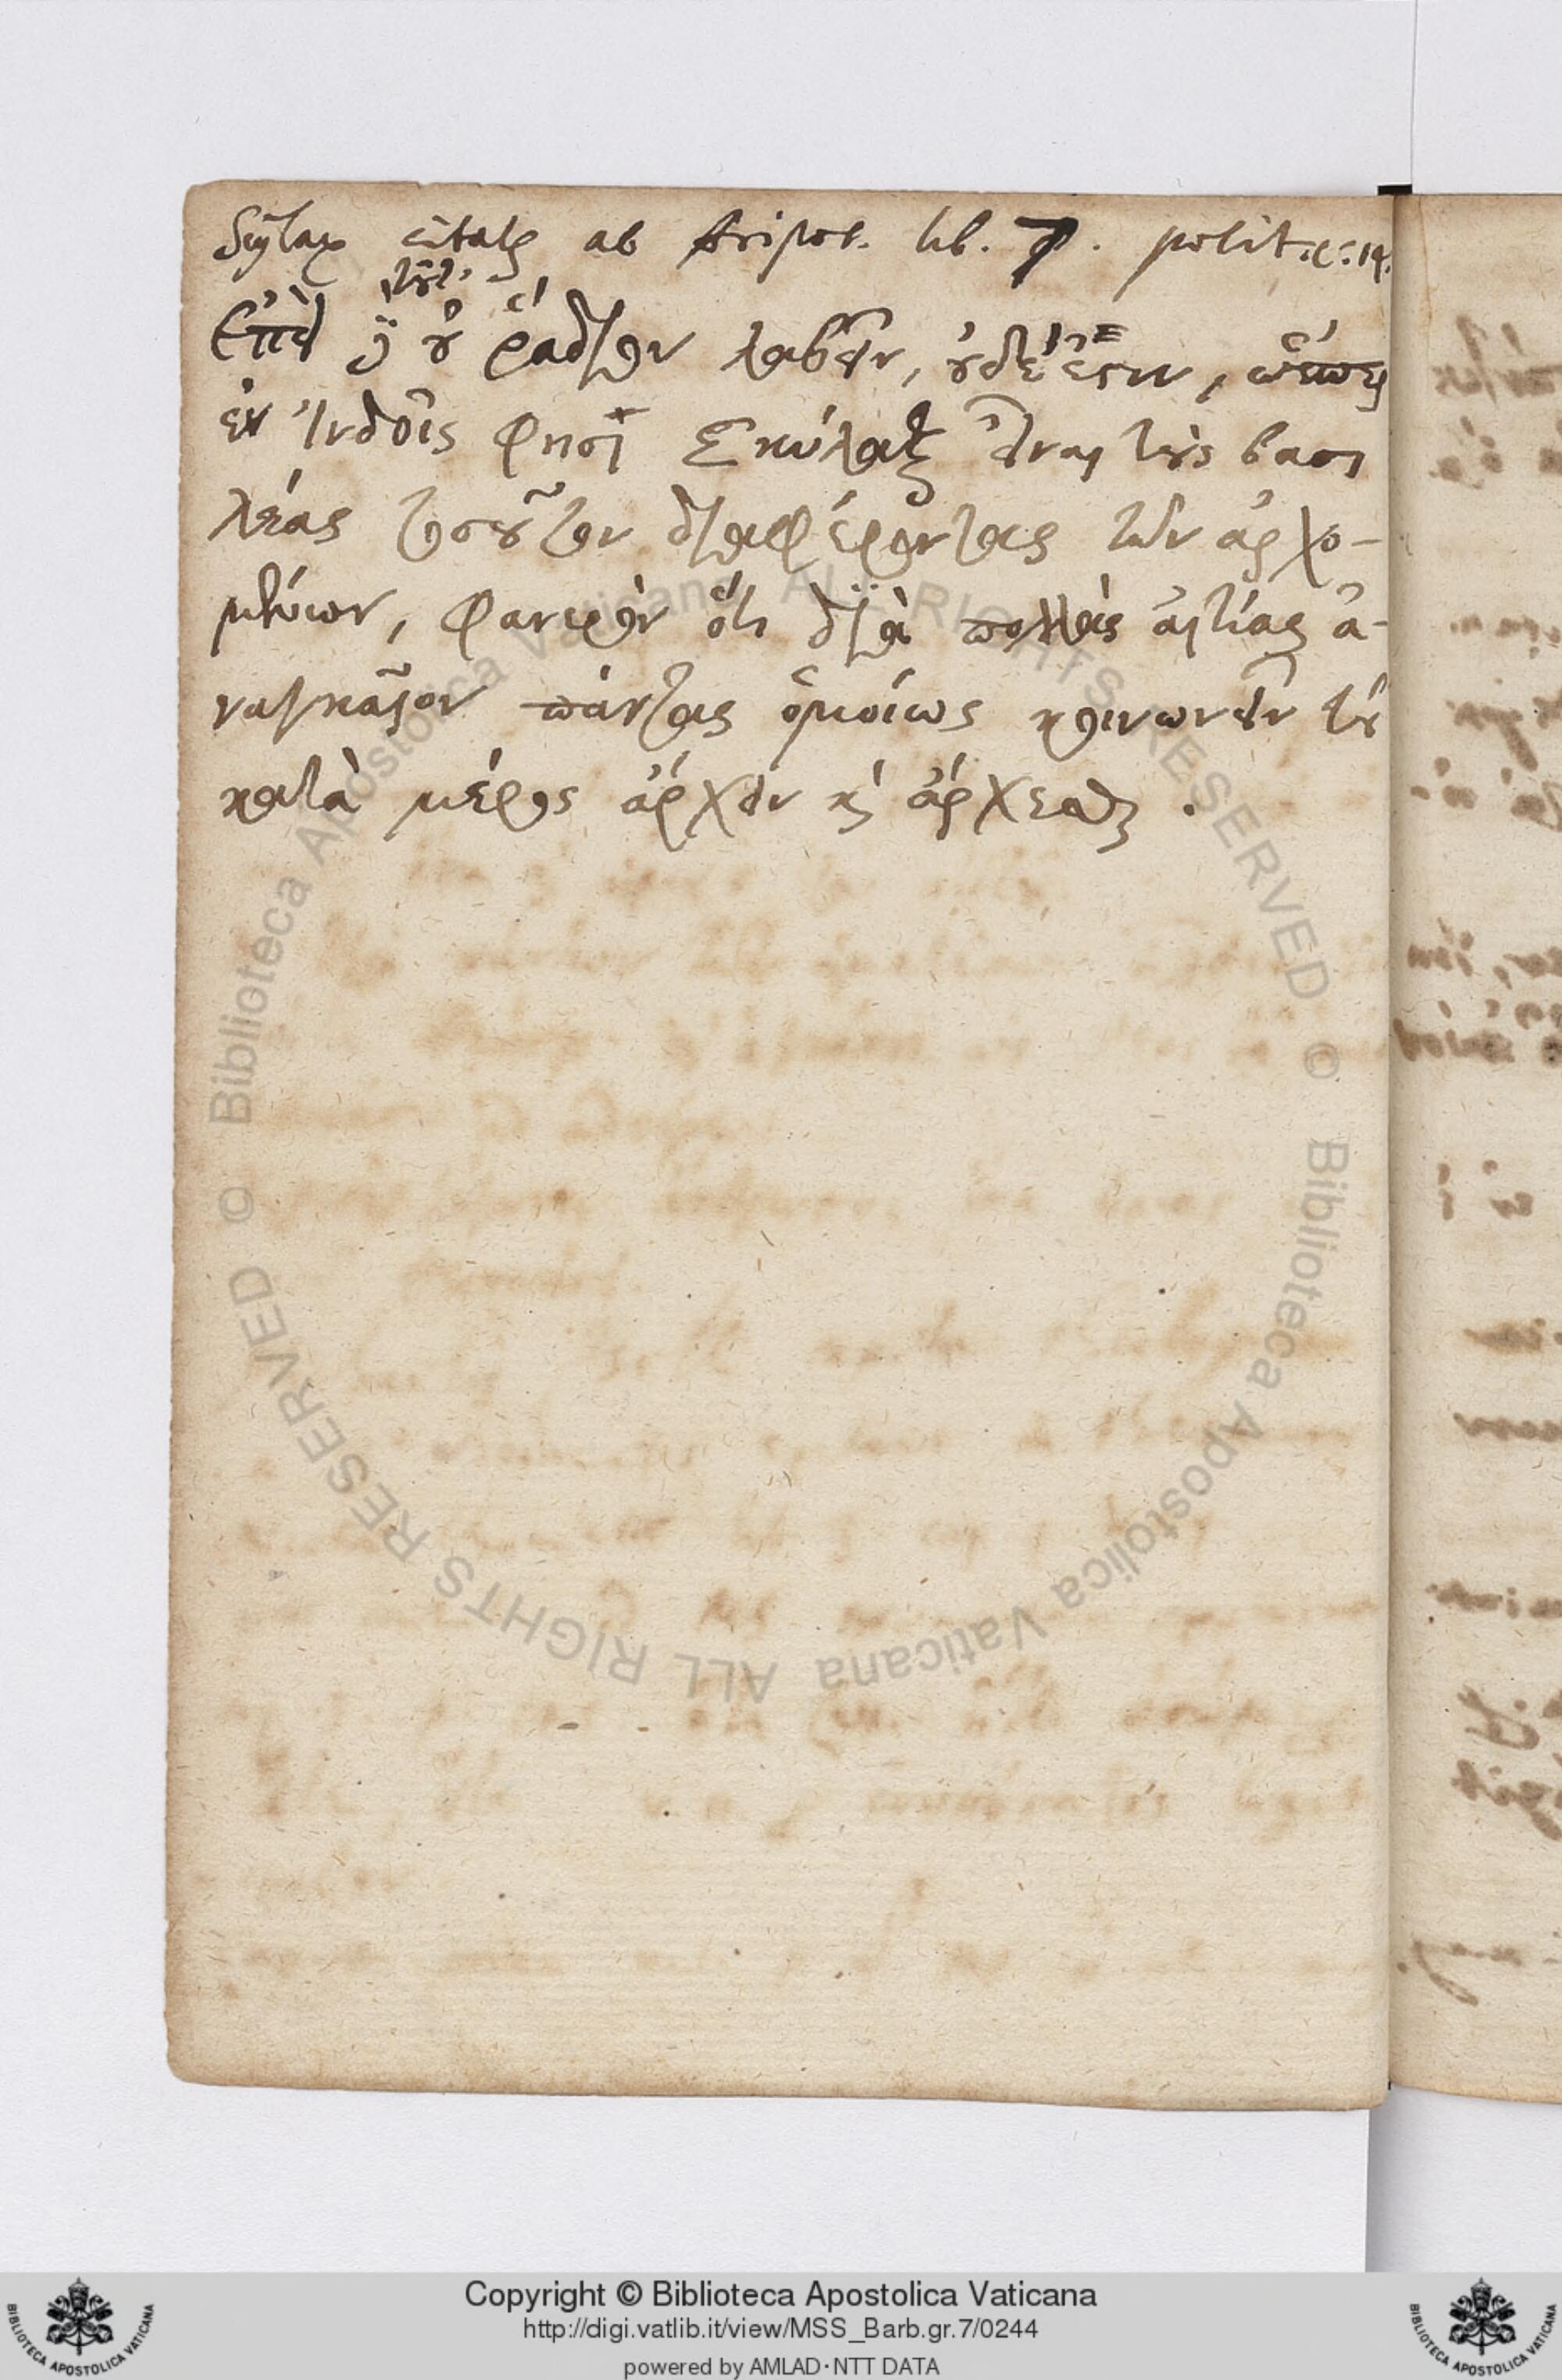 Scylax citatus ab Aristot. lib. 7. polit. c. 14.
τοῦτ'
Ἐπεὶ δὲ οὐ ῥάδιον λαβεῖν, οὐδέ ἐστιν, ὥσπερ
ἐν Ἰνδοῖς φησὶ Σκύλαξ εἶναι τοὺς βασι
λέας τοσοῦτον διαφέροντας τῶν ἀρχο-
μένων, φανερὸν ὅτι διὰ πολλὰς αἰτίας ἀ-
ναγκαῖον πάντας ὁμοίως κοινωνεῖν τοῦ
κατὰ μέρος ἄρχειν καὶ ἄρχεσθαι.
© Biblioteca Apostolica Vaticana ALL RIGHTS RESERVED © Biblioteca Apostolica Vaticana ALL RIGHTS RESERVED
Copyright © Biblioteca Apostolica Vaticana
http://digi.vatlib.it/view/MSS_Barb.gr.7/0244
powered by AMLAD·NTT DATA
BIBLIOTECA APOSTOLICA VATICANA
BIBLIOTECA APOSTOLICA VATICANA